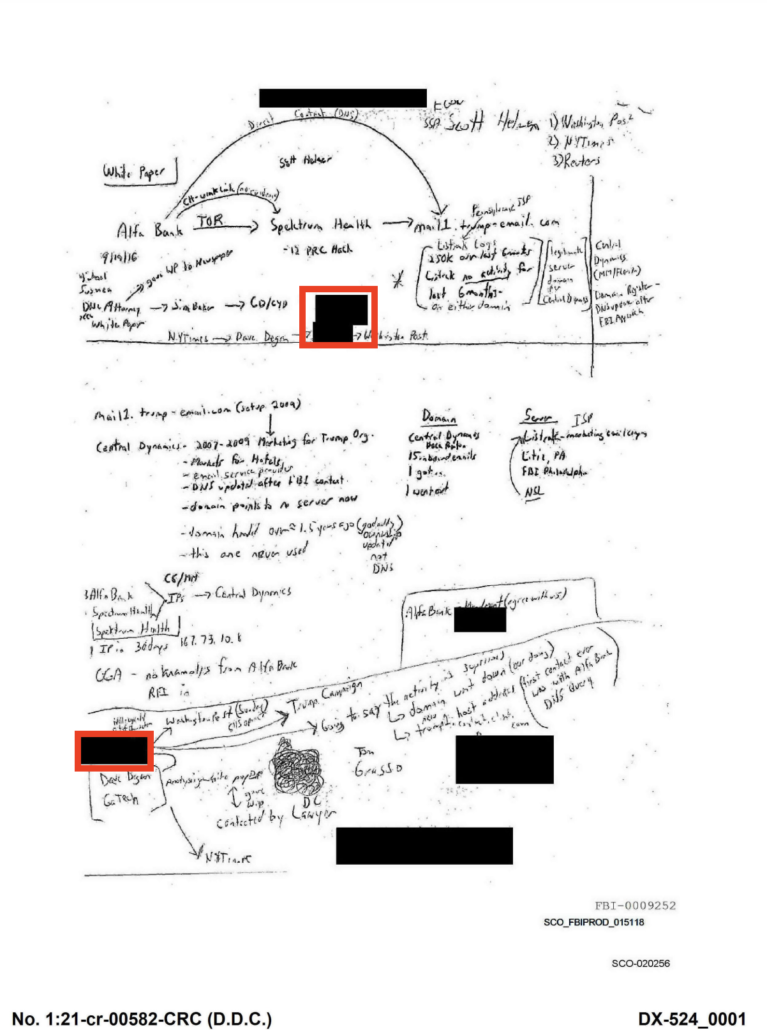 Direct Contact (DNS)
EGOV
SSA Scott Hellman
1) Washington Post
2) NYTimes
3) Reuters
Scott Hellman
White Paper
Alfa Bank TOR → Spectrum Health → mail1.trump-email.com
Pennsylvania ISP
-12 PRC Hack
Listrak Logs
250K over last 6 months
Listrak no activity for
last 6 months-
on either domain
legitimate
server
domain
for
Central Dynamics
Central
Dynamics
Domain Register-
DNS update after
FBI
9/19/16
gave WP to Newspaper
DNC Attorney → Jim Baker → CD/CYD
White Paper
NYTimes → Dave Dagon → → Washington Post
mail1.trump-email.com (setup 2009)
Central Dynamics- 2007-2009 Marketing for Trump Org.
- Markets for Hotels
- email service provider
- DNS updated after FBI contact
- domain points to no server now
- domain handed over ≈ 1.5 years ago (godaddy)
ownership
updated
not
DNS
- this one never used
Domain
Central Dynamics
15 inbound emails
1 got in
1 went out
Server ISP
Listrak - marketing email
Litiz, PA
FBI Philadelphia
NSL
3 Alfa Bank
• Spectrum Health
IPs → Central Dynamics
Spektrum Health
1 IP in 30 days 167.73.10.8
Alfa Bank - Mandiant (agree with us)
GGA - no analysis from Alfa Bank
RFI in
Washington Post (Sunday)
Trump Campaign
Going to say the activity is suspicious
↳ domain went down (our doing)
↳ new host address (first contact ever
was with Alfa Bank
DNS Query
Dave Dagon
GaTech
white paper
gave
W.P
contacted by DC Lawyer
Tom
Grasso
NYTimes
FBI-0009252
SCO_FBIPROD_015118
SCO-020256
No. 1:21-cr-00582-CRC (D.D.C.) DX-524_0001